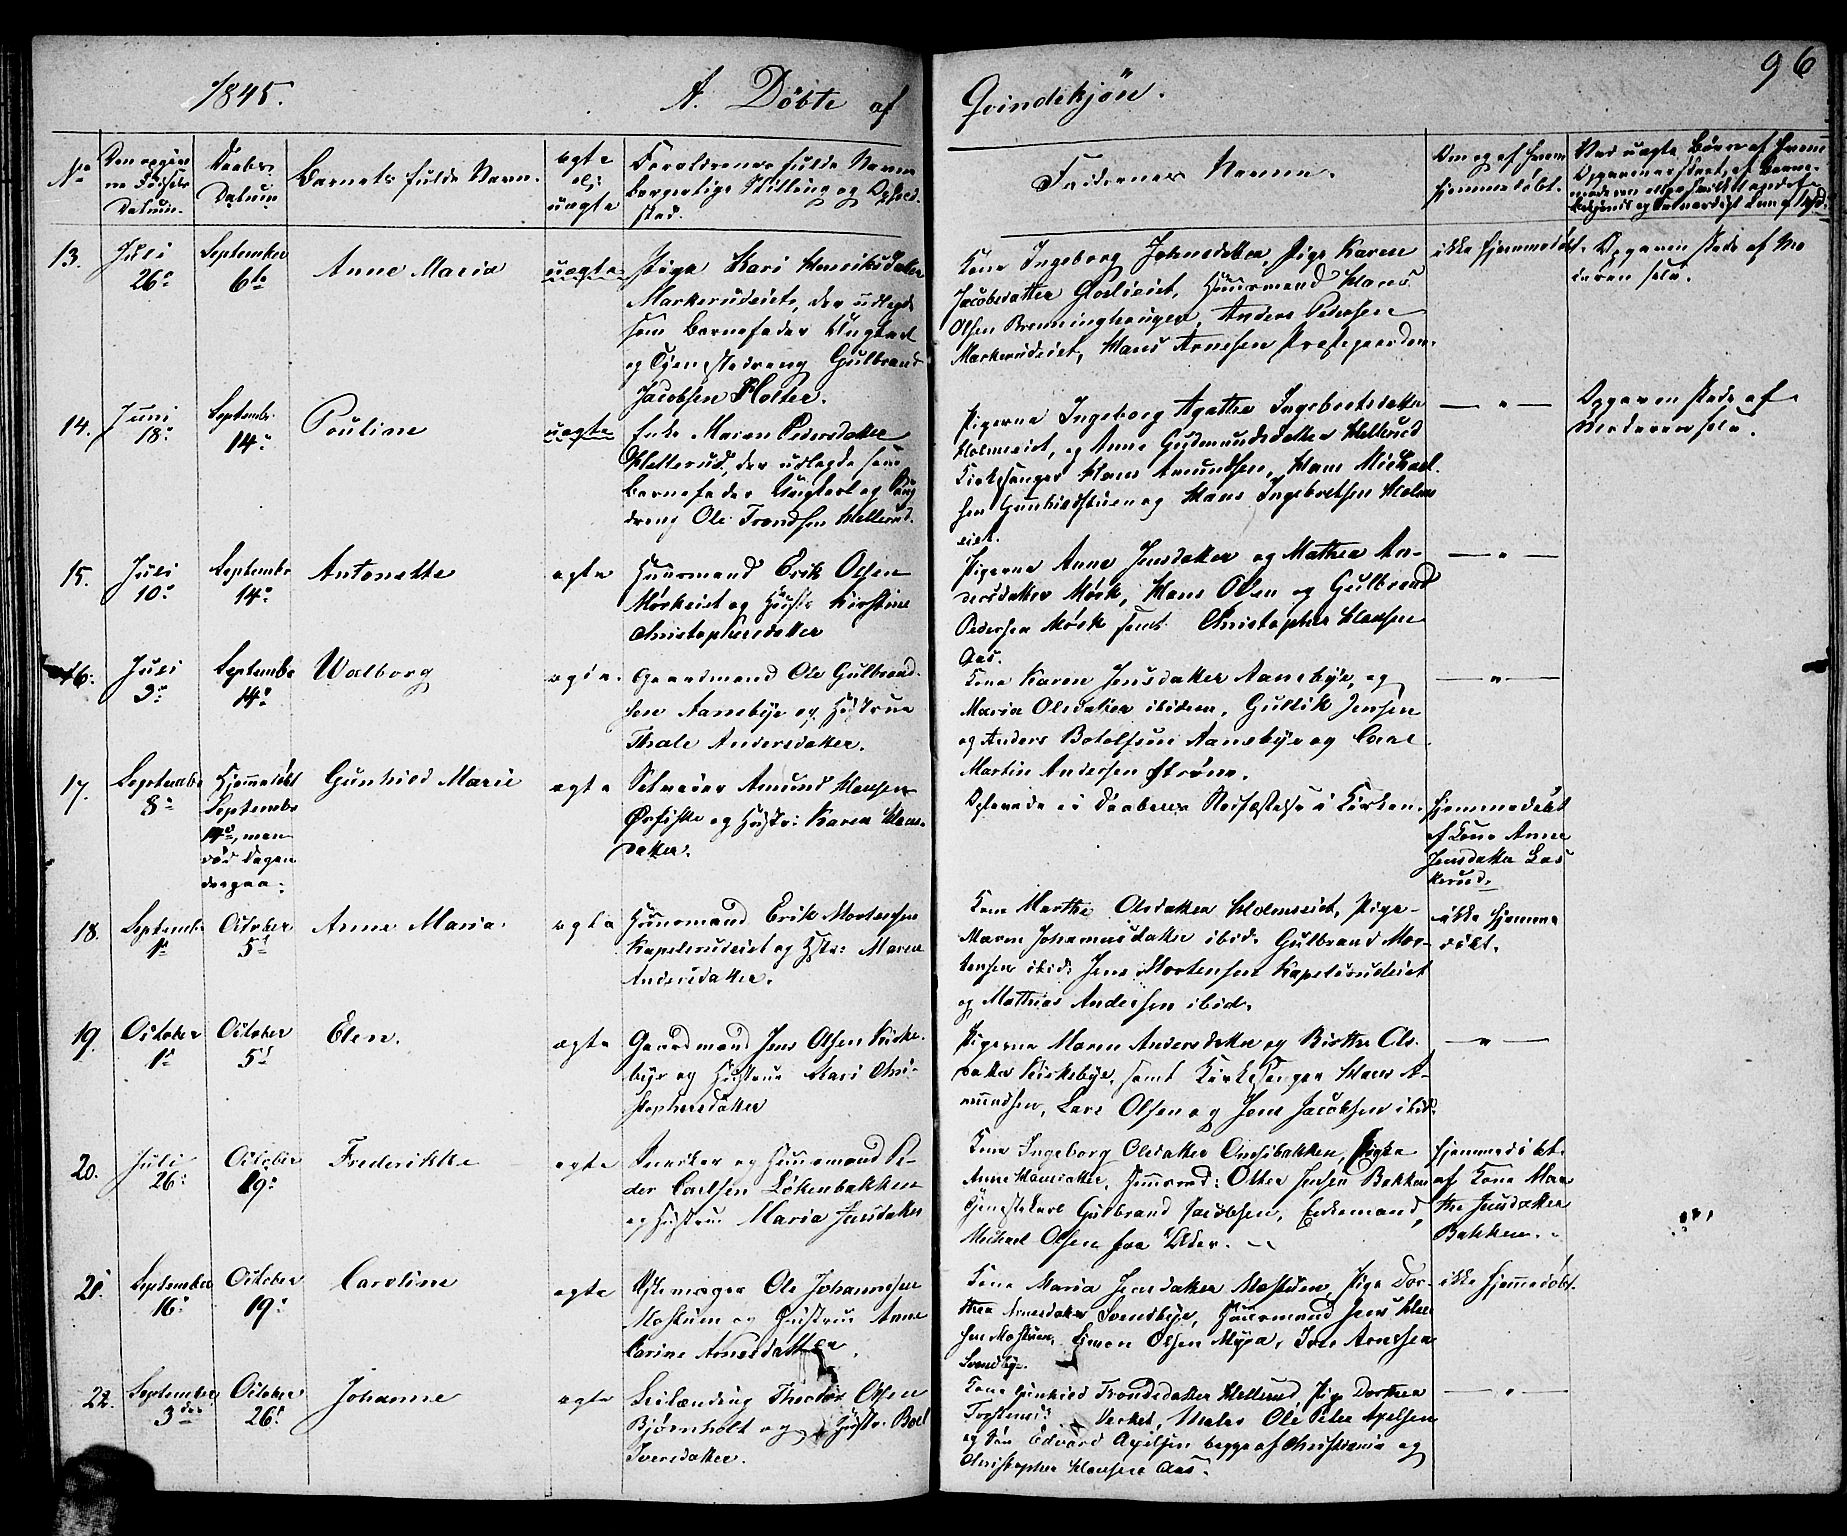 96
1845. A. Döbte af Qvindekjön.
No
Den opgivne Födsels Datum.
Daabs Datum
Barnets fulde Navn.
ægte el: uægte
Forældrenes fulde Navne borgerlige Stilling og Opholdssted.
Faddernes Navne.
Om og af hvem hjemmedöbt.
13. Juli 26de
September 6te
Anne Maria
uægte
Pige Kari Henriksdatter
Markerudeiet, der udlagde
som Barnefader Ungkarl
og Tjenestedreng Gulbrand
Jacobsen Holter.
Kone Ingeborg Johnsdatter, Pige Karen
Jacobsdatter Goslieiet, Huusmand Hans
Olsen Brenninghaugen, Anders Pedersen
Markerudeiet, Hans Arnesen Præstegaarden.
ikke hjemmedöbt.
Opgaven skede af Moderen selv.
14. Juni 18de
Septembr. 14de
Pouline
uægte
Enke Maren Pedersdatter
Hellerud, der udlagde som
Barnefader Ungkarl og
dreng Ole Trondsen Hellerud.
Pigerne Ingeborg Agathe Ingebretsdatter
Holmseiet, og Anne Gudmundsdatter Hellerud
Kirkesanger Hans Amundsen, Hans Michael-
sen Gunhildstuen og Hans Ingebretsen Holms
eiet.
— " —
Opgaven skede af
Moderen selv.
15. Juli 10de
Septembr 14de
Antonette
ægte
Huusmand Erik Olsen
Mørkeiet og Hustr Kirstine
Christophersdatter
Pigerne Anne Jensdatter og Mathea An-
dersdatter Mørk, Hans Olsen og Gulbrand
Pedersen Mørk samt Christopher Hansen
Aas.
— " —
16. Juli
September 14de
Walborg
ægte.
Gaardmand Ole Gulbrand-
sen Aanebye og Hustrue
Thale Andersdatter.
Kone Karen Jensdatter Aanebye, og
Maria Olsdatter ibidem, Gullik Jensen
og Anders Botolfsen Aanebye og Carl
Martin Andersen Strøm.
— " —
17. September 8de
Hjemmedöbt
Septembr
14de, men
död Dagen
derpaa.
Gunhild Marie
ægte
Selveier Amund Hansen
Ørfiske og Hustr: Karen Hans-
datter.
Döde inden Daabens Stadfæstelse i Kirken.
hjemmedöbt
af Kone Anne
Jensdatter Las
kerud.
18. Septembr 1de
October 5te
Anne Maria.
ægte
Huusmand Erik Mortensen
Kapelsrudeiet og Hstr: Maren
Andersdatter.
Kone Marthe Olsdatter Holmseiet, Pige
Maren Johannesdatter ibid. Gulbrand Mor-
tensen ibid. Jens Mortensen Kapelsrudeiet
og Mathias Andersen ibid.
ikke hjemme
döbt.
19. October 1de
October 5te
Elen.
ægte
Gaardmand Jens Olsen Kirke-
bye og Hustrue Mari Chri-
stophersdatter
Pigerne Maren Andersdatter og Birthe Ols-
datter Kirkebye, samt Kirkesanger Hans A-
mundsen, Lars Olsen og Jens Jacobsen ibid.
— " —
20. Juli 26de
October 19de
Frederikke
ægte
Snedker og Huusmand Pe-
der Carlsen Løkenbakken
og Hustru Maria Jensdatter
Kone Ingeborg Olsdatter Orefibakken, Pige
Anne Hansdatter, Huusmd: Otter Jensen Bakken
Tjenestekarl Gulbrand Jacobsen, Enkemand,
Michael Olsen fra Aker.
hjemmedöbt
af Kone Mar-
the Jensdatter
Bakken.
21. September 16de
October 19de
Caroline
ægte
Ole Johannesen
Moskum og Hustrue Anne
Carine Arnesdatter.
Kone Maria Jensdatter Moskum, Pige Dor-
thea Arnesdatter Svendbye, Huusmand Jens Han-
sen Moskum, Simon Olsen Myra, Iver Arnesen
Svendbye.
ikke hjemmedöbt.
22. September 3die
October 26de
Johanne
ægte
Seilænding Theodor Olsen
Bjørnholt og Hustr. Boel
Iversdatter.
Kone Gunhild Trondsdatter Hellerud, Pige Dorthea
Verket, Maler Ole Peter Axelsen
og Edvard Axelsen begge af Christiania og
Christopher Hansen Aas.
— " —